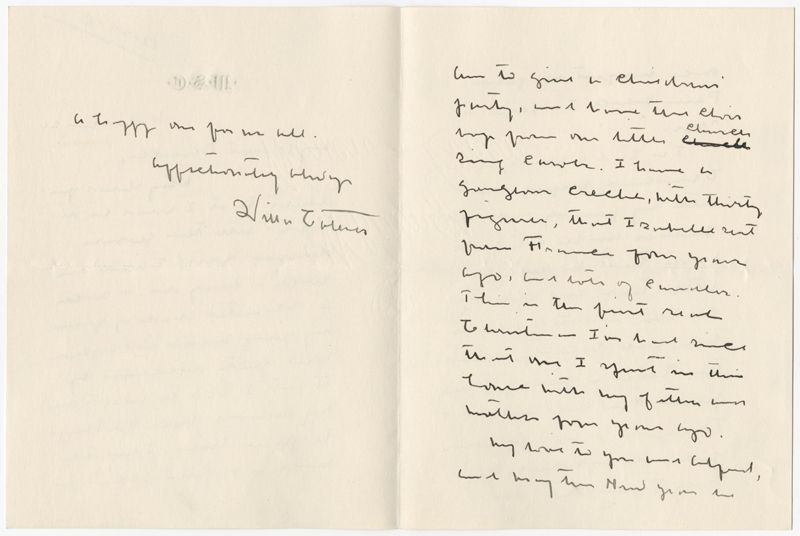 am to give a children's
party, and have the choir
boys from our little church
church
sing carols. I have a
gorgeous creche, with thirty
figures, that Isabelle sent
from France four years
ago, and lots of candles.
This is the first real
Christmas I've had since
that one I spent in this
house with my father and
mother four years ago.
My love to you and Alfred,
and may the New Year be
a happy one for us all.
Affectionately always
Willa Cather